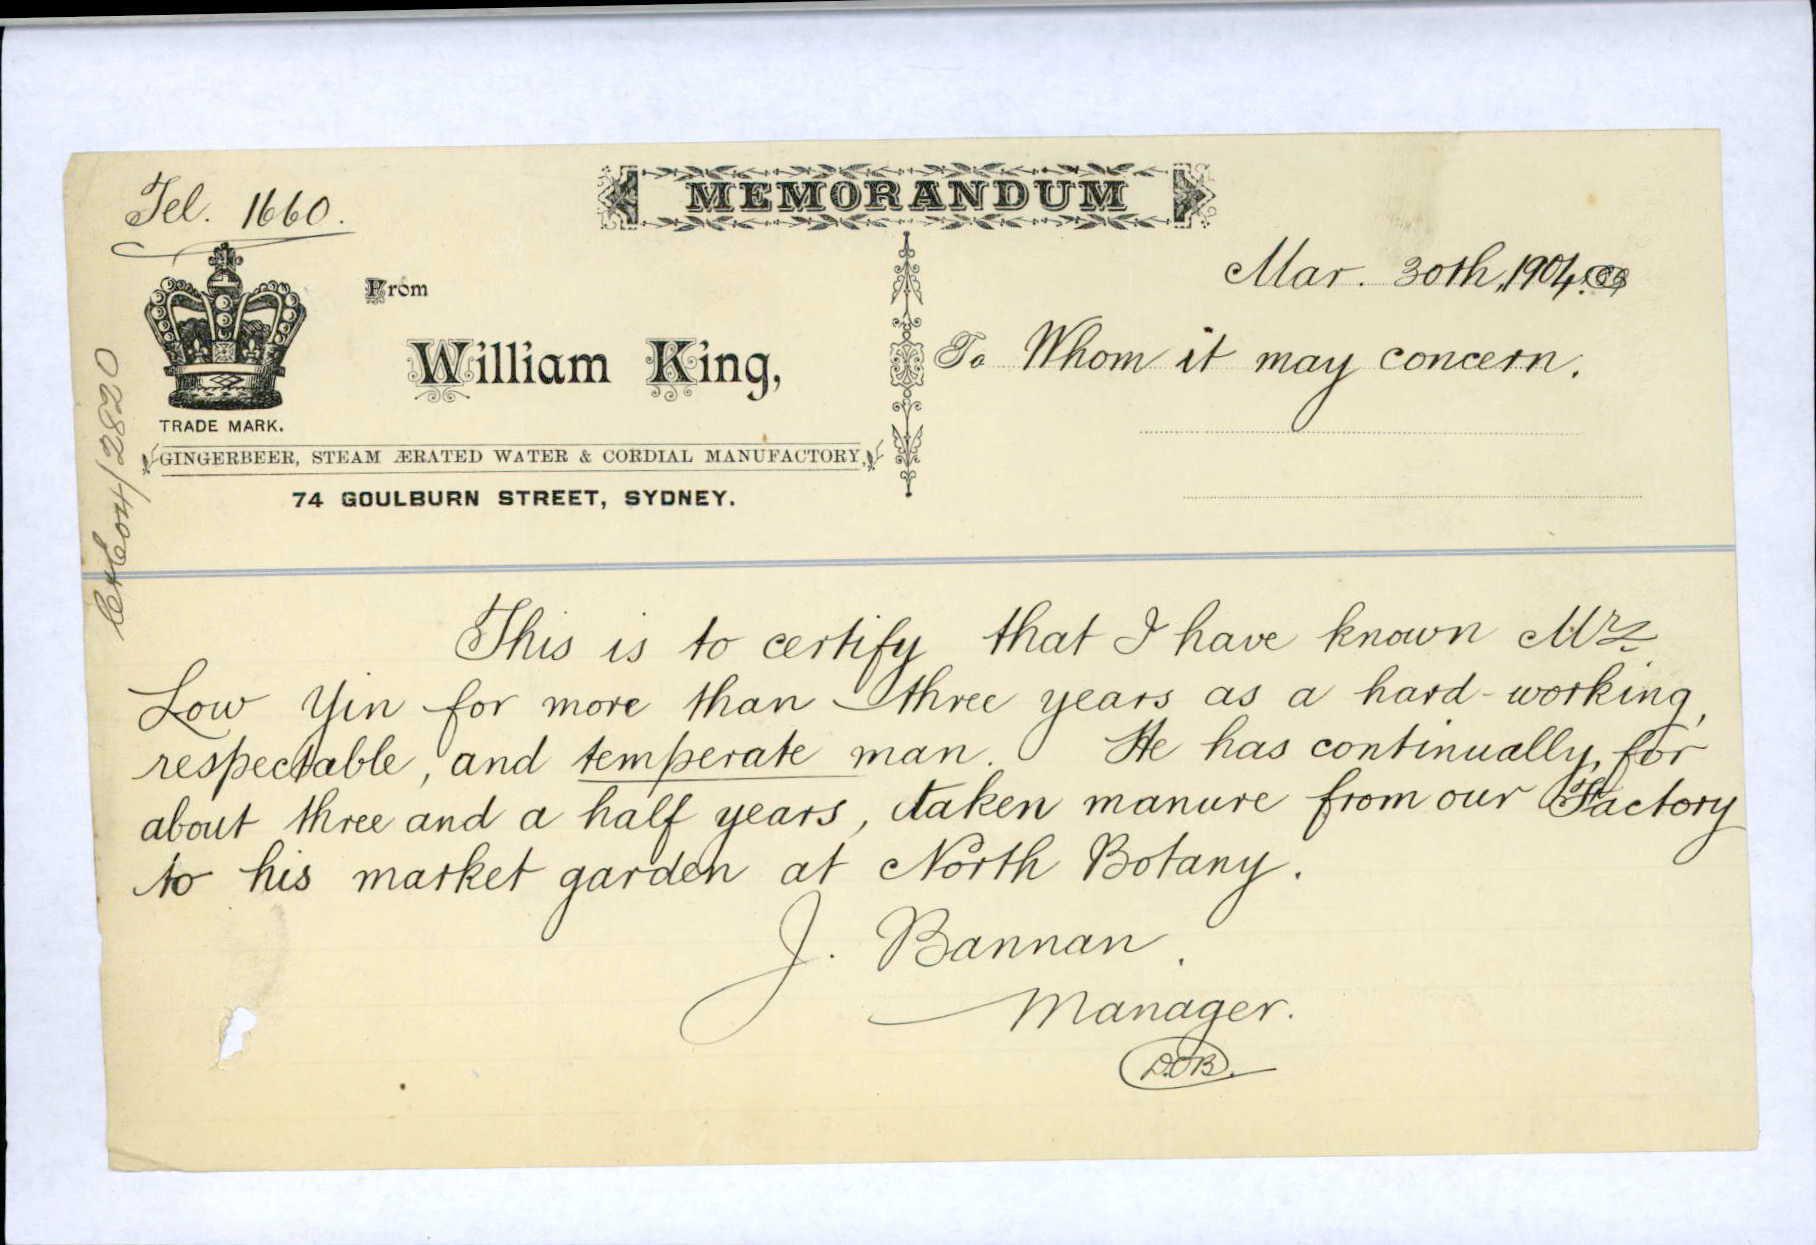 MEMORANDUM
Tel. 1660.
Mar. 30th, 1904.
From
William King,
To Whom it may concern.
TRADE MARK.
GINGERBEER, STEAM ÆRATED WATER & CORDIAL MANUFACTORY,
74 GOULBURN STREET, SYDNEY.
04/2820
This is to certify that I have known Mr.
Low Yin for more than three years as a hard-working,
respectable, and temperate man. He has continually, for
about three and a half years, taken manure from our Factory
to his market garden at North Botany.
J. Bannan.
Manager.
D.O'B.